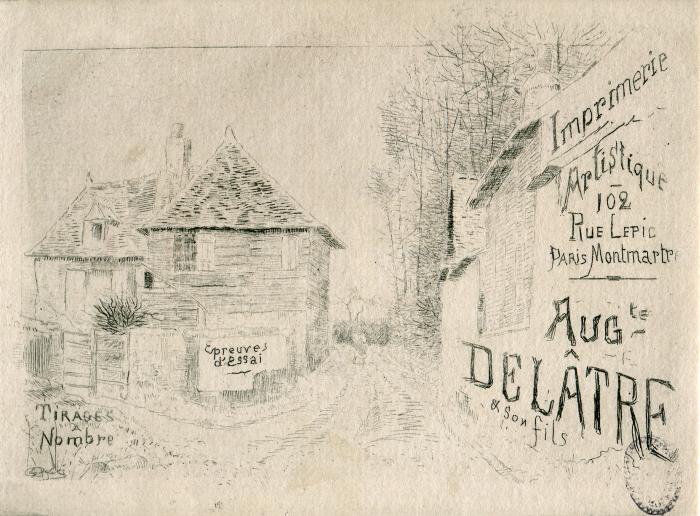 Imprimerie
Artistique
102
Rue Lepic
Paris Montmartre
Aug^te
DELÂTRE
& son fils
Epreuves
d'Essai
TIRAGES
à
Nombre